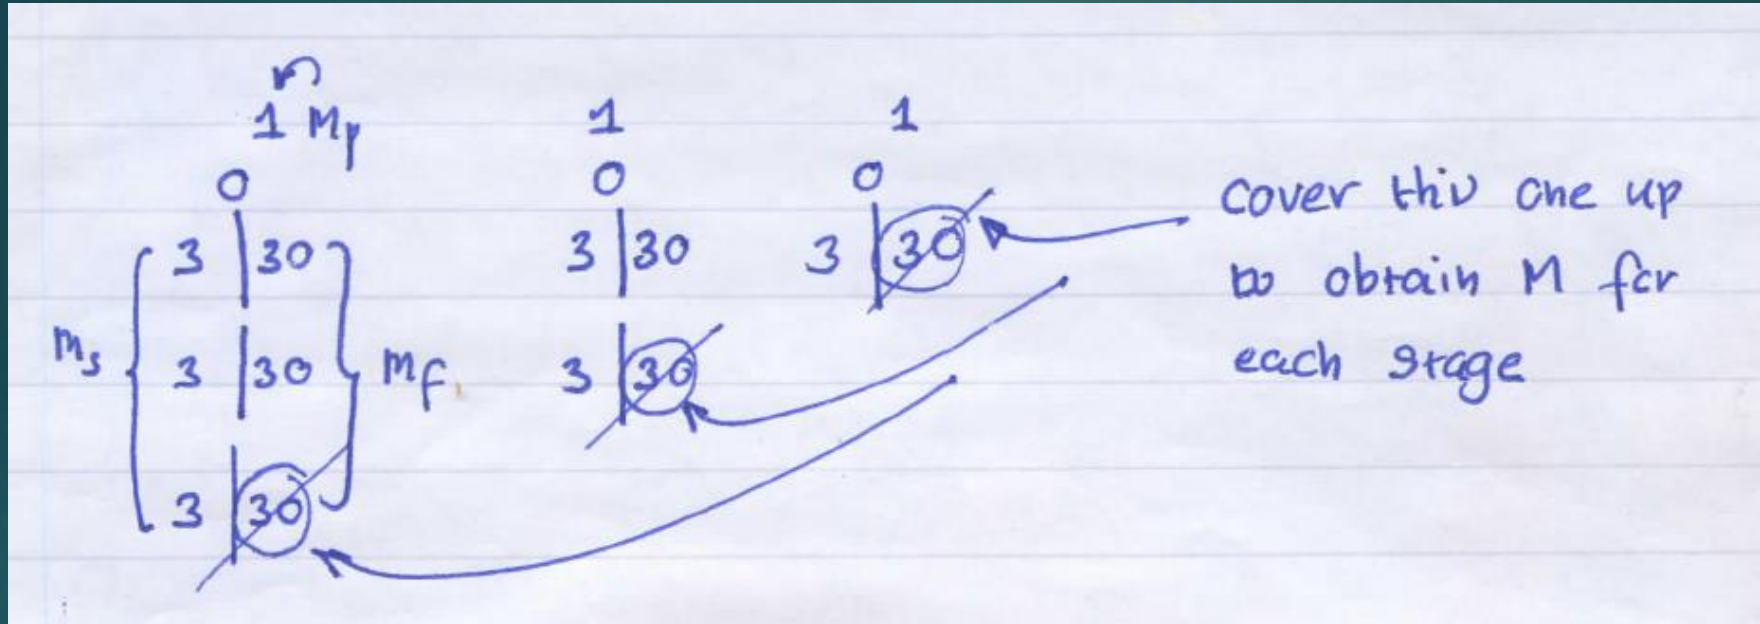 1 Mp 1 1
0 0 0
3 30 3 30 3 30
ms 3 30 mf 3 30
3 30
cover thiv one up
to obtain M for
each stage